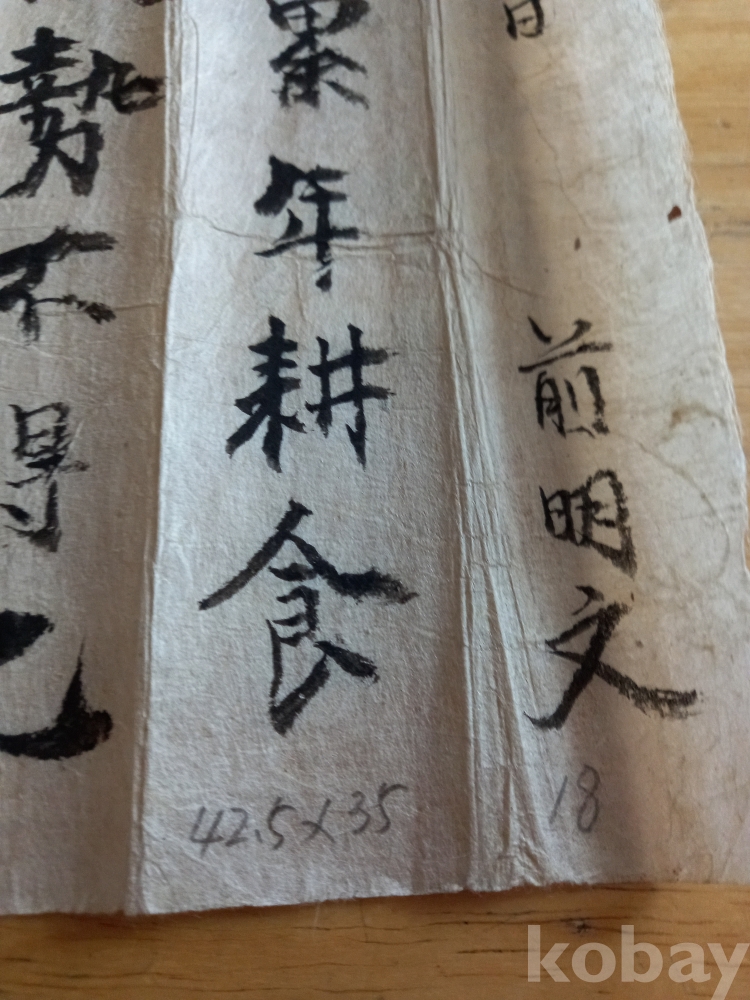 日 前明文
累年耕食
勢不得已
42.5×35
18
kobay